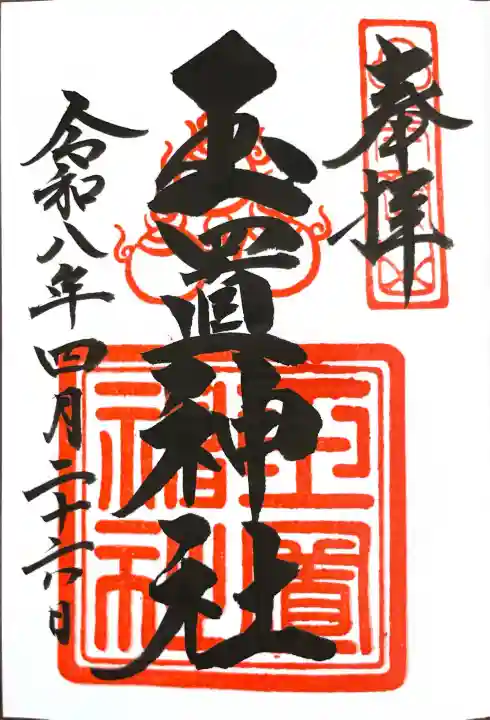 奉拝
玉置神社
令和八年四月二十六日
玉置神社